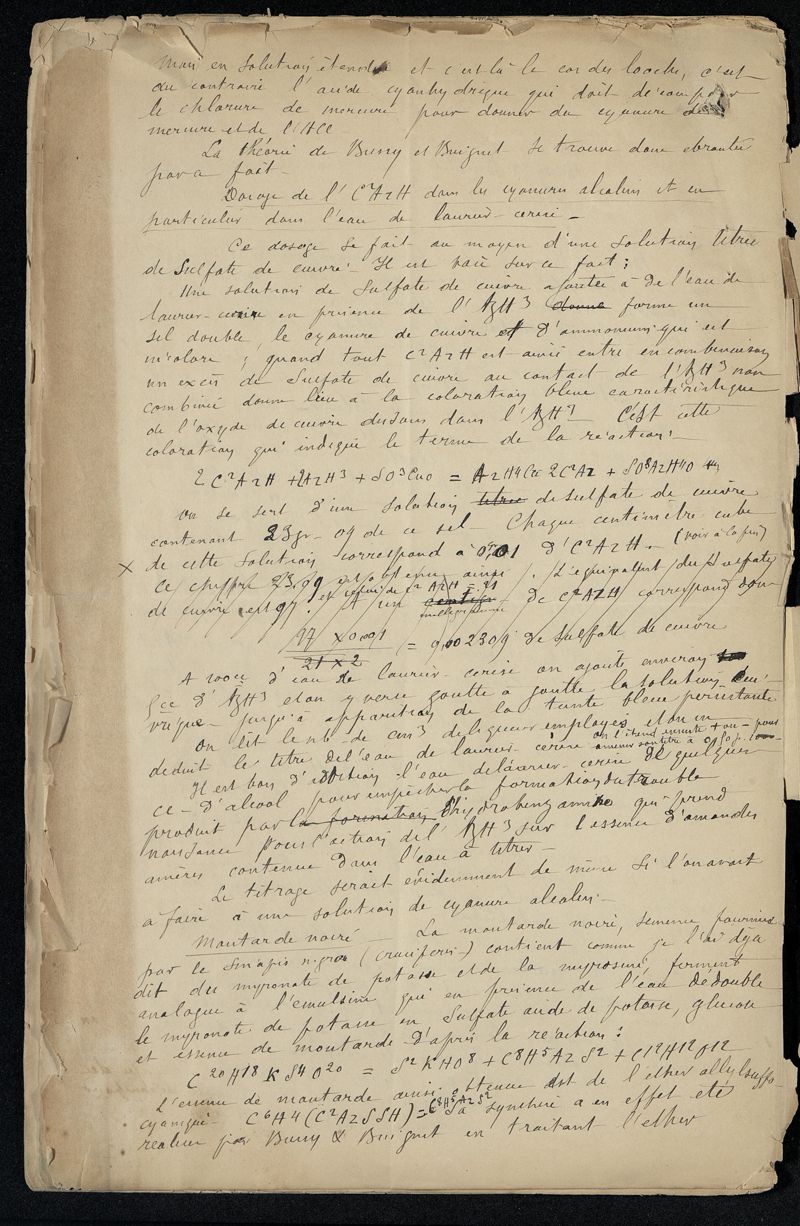 Mais en solution étendue et c'est là le cas des loochs, c'est
au contraire l'acide cyanhydrique qui doit décomposer
le chlorure de mercure pour donner du cyanure de
mercure et de l'HCl
La théorie de Bussy et Buignet se trouve donc ébranlée
par a fait -
Dosage de l'C²AzH dans les cyanures alcalins et en
particulier dans l'eau de laurier-cerise -
Ce dosage se fait au moyen d'une solution titrée
de sulfate de cuivre - Il est basé sur ce fait :
Une solution de sulfate de cuivre ajoutée à de l'eau de
laurier-cerise en présence de l'AzH³ donne forme un
sel double, le cyanure de cuivre et d'ammonium qui est
incolore ; quand tout C²AzH est ainsi entré en combinaison
un excès de sulfate de cuivre au contact de l'AzH³ non
combiné donne lieu à la coloration bleue caractéristique
de l'oxyde de cuivre dissous dans l'AzH³ C'est cette
coloration qui indique le terme de la réaction :
2C²AzH + 2AzH³ + SO³CuO = AzH4Cu 2C²Az + SO³AzH4O
On se sert d'une solution titrée de sulfate de cuivre
contenant 23gr-09 de ce sel - Chaque centimètre cube
de cette solution correspond à 0,001 d'C²AzH - (voir à la fin)
× Ce chiffre 23,09 est obtenu ainsi : L'équivalent du sulfate
de cuivre est 97, C²AzH = 21
A un centigr milligramme de C²AzH correspond
97 × 0,001 / 21 × 2 = 0,002309 de sulfate de cuivre
A 100cc d'eau de laurier-cerise on ajoute environ
5cc d'AzH³ et on y verse goutte à goutte la solution
jusqu'à apparition de la teinte bleue persistante
On lit le nb- de cm³ de liqueur employés et on en
déduit le titre de l'eau de laurier-cerise on l'étend ensuite + ou - pour
amener son titre à
Il est bon d'addition l'eau de laurier-cerise de quelques
cc - d'alcool pour empêcher la formation du trouble
produit par la formation l'hydrobenzamide qui prend
naissance sous l'action de l'AzH³ sur l'essence d'amandes
amères contenue dans l'eau à titrer -
Le titrage serait évidemment de même si l'on avait
à faire à une solution de cyanure alcalin -
Moutarde noire - La moutarde noire, semence fournie
par le Sinapis nigra (crucifères) contient comme je l'ai déjà
dit du myronate de potasse et de la myrosine, ferment
analogue à l'émulsine qui en présence de l'eau dédouble
le myronate de potasse en sulfate acide de potasse, glucose
et essence de moutarde d'après la réaction :
C20H18KS4O20 = S²KHO8 + C8H5AzS² + C12H12O12
L'essence de moutarde ainsi obtenue est de l'ether allylsulfo
cyanique C6H4(C²AzSSH) = C8H5AzS² Sa synthèse a en effet été
réalisée par Bussy & Buignet en traitant l'éther